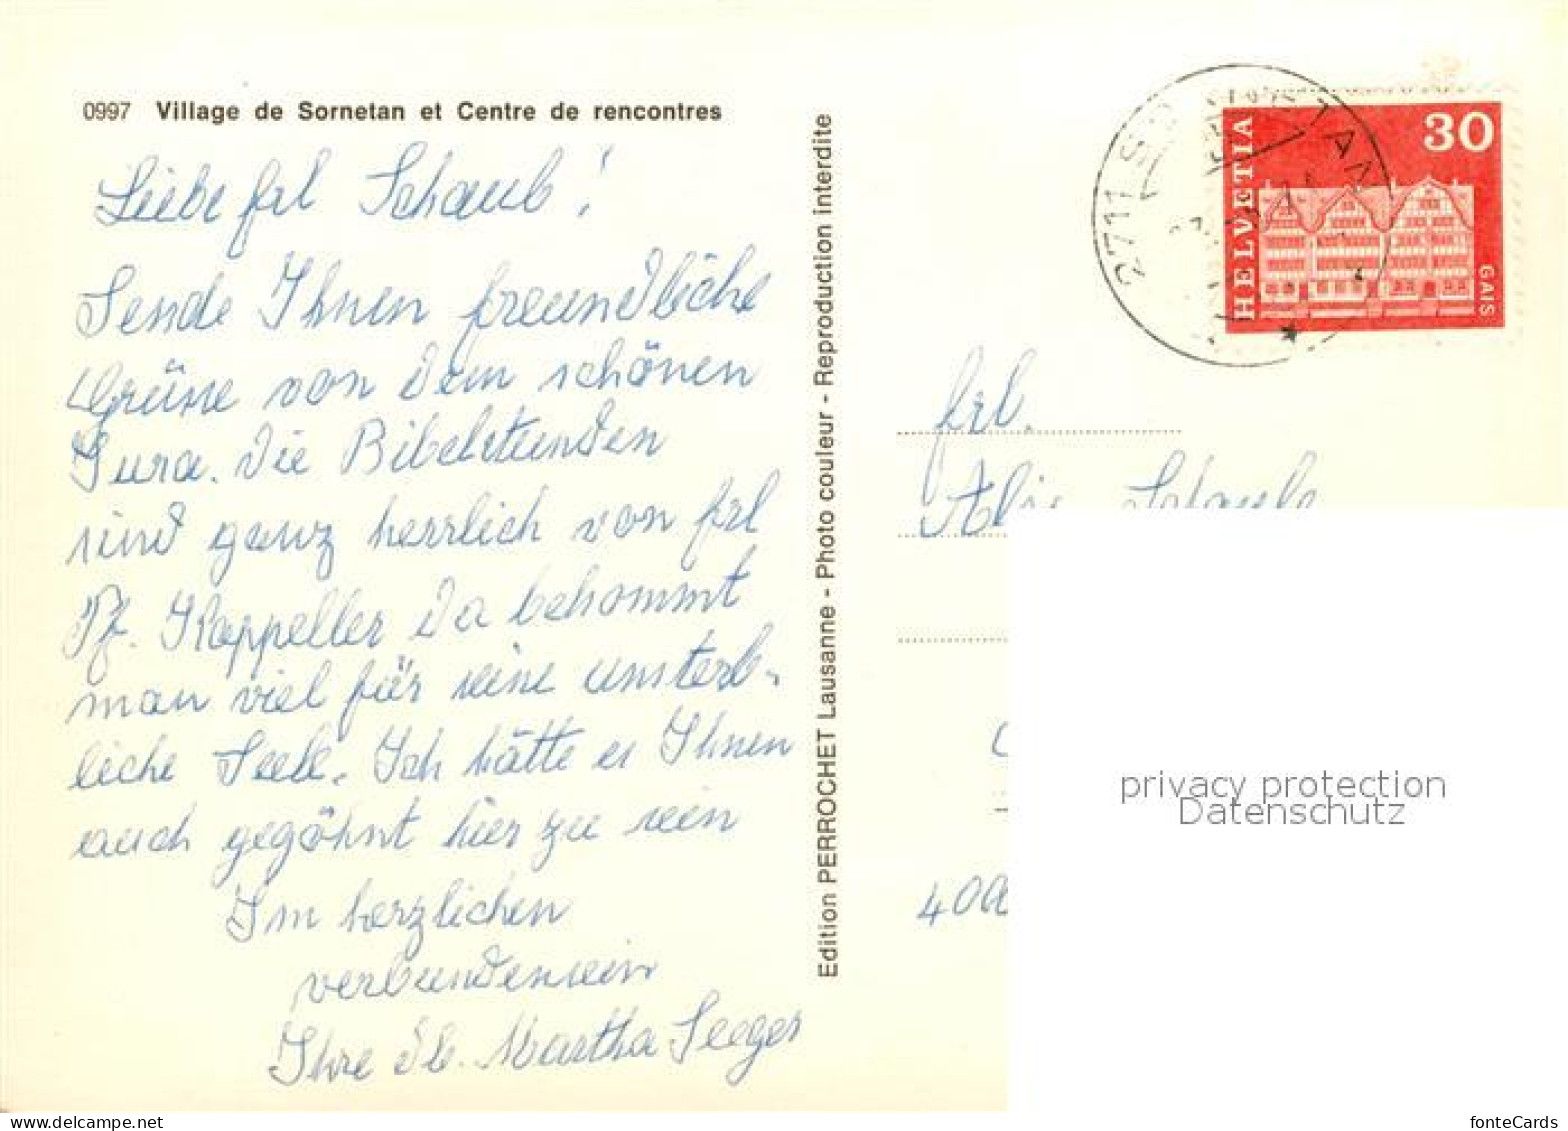 0997 Village de Sornetan et Centre de rencontres
Liebe Frl Schaub!
Sende Ihnen freundliche
Grüsse von dem schönen
Jura. Die Bibelstunden
sind ganz herrlich von Frl
Pf. Kappeller Da bekommt
man viel für seine unsterb-
liche Seele. Ich hätte es Ihnen
auch gegöhnt hier zu sein
Im herzlichen
verbundensein
Ihre Martha Seeger
Edition PERROCHET Lausanne - Photo couleur - Reproduction interdite
2711 SORNETAN
HELVETIA
30
GAIS
Frl.
Schaub
privacy protection
Datenschutz
fonteCards